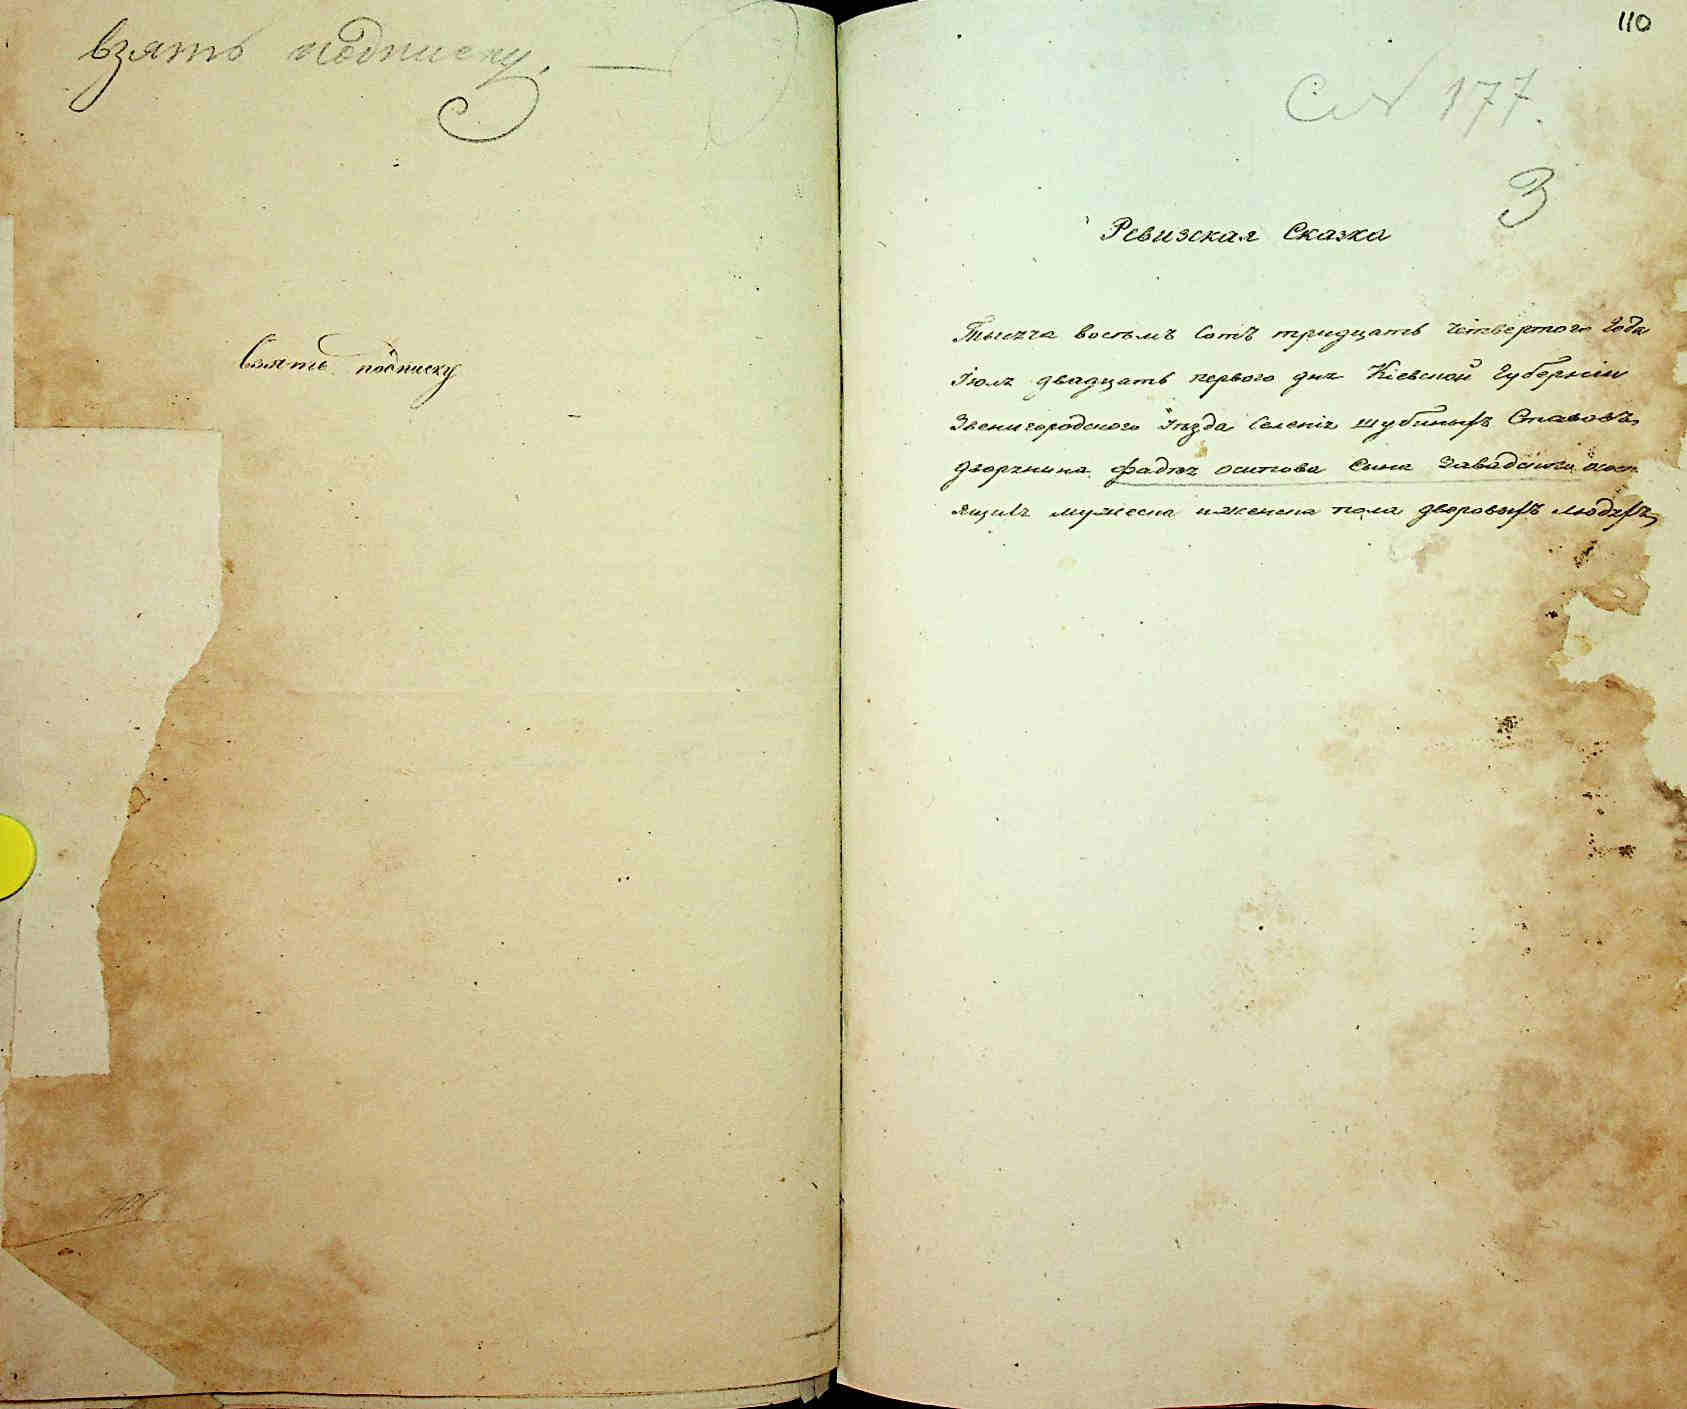 взять подписку.
Взять подписку
110
С № 177.
3
Ревизская Сказка
Тысяча восемъ Сотъ тридцать четвертого Года
Іюля двадцать первого дня Кіевской Губерніи
Звенигородского Уѣзда Селенія Шубиныхъ Ставовъ
дворянина фадѣя осипова Сына Завадского о состо
ящихъ мужеска и женска пола дворовыхъ людяхъ